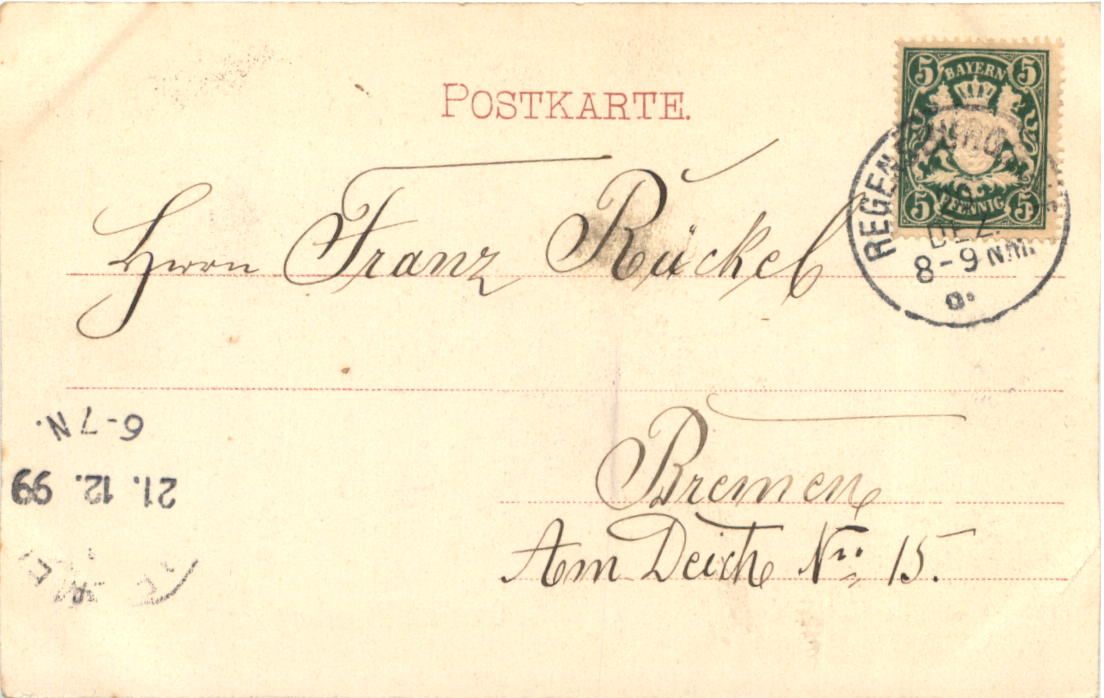 POSTKARTE.
5 BAYERN 5
5 PFENNIG 5
REGENSBURG
DEZ.
8-9 NM.
a.
Herrn Franz Rückel
Bremen
Am Deich Nro. 15.
6-7 N.
21. 12. 99